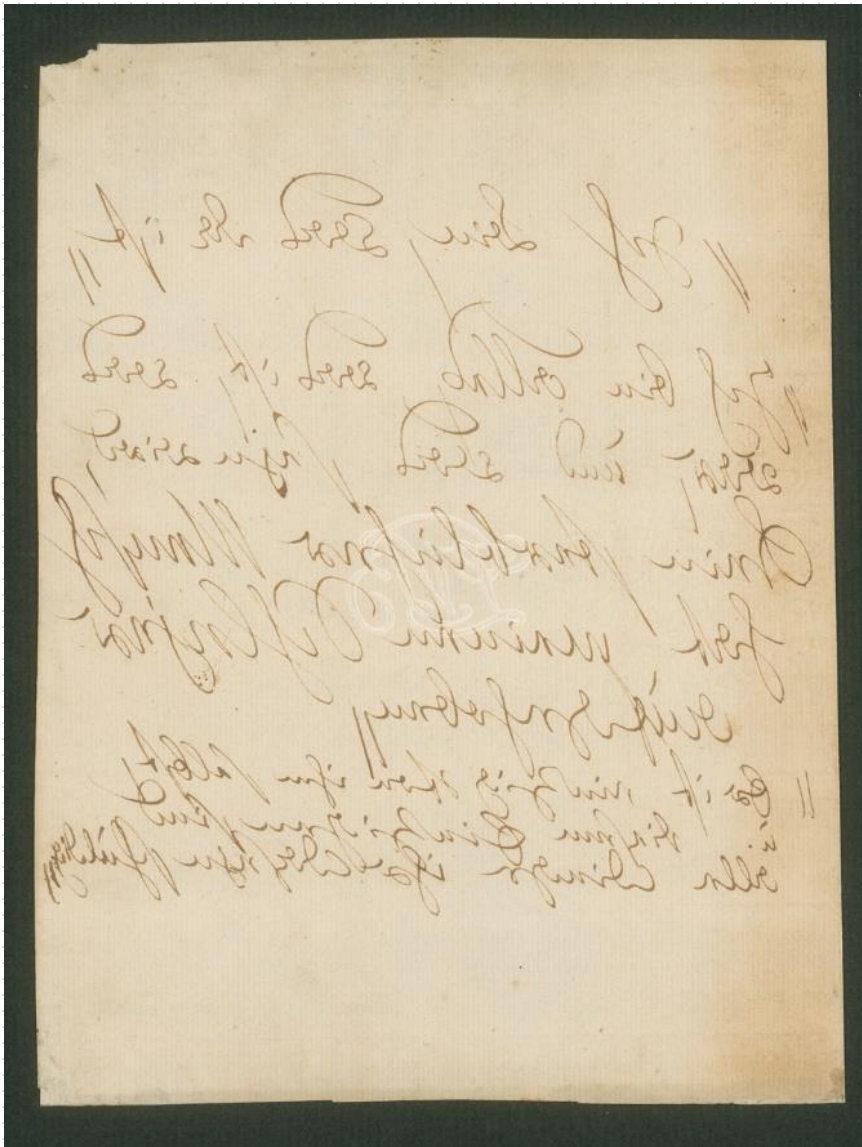 // Ich bin, Was da ist //
// Ich bin alles, Was ist, Was
War, und Was seyn wird,
Kein sterblicher Mensch
hat meinen Schleyer
aufgehoben //
// Er ist einzig von ihm selbst,
u. diesem Einzigen sind
alle Dinge ihr Daseyn schuldig //